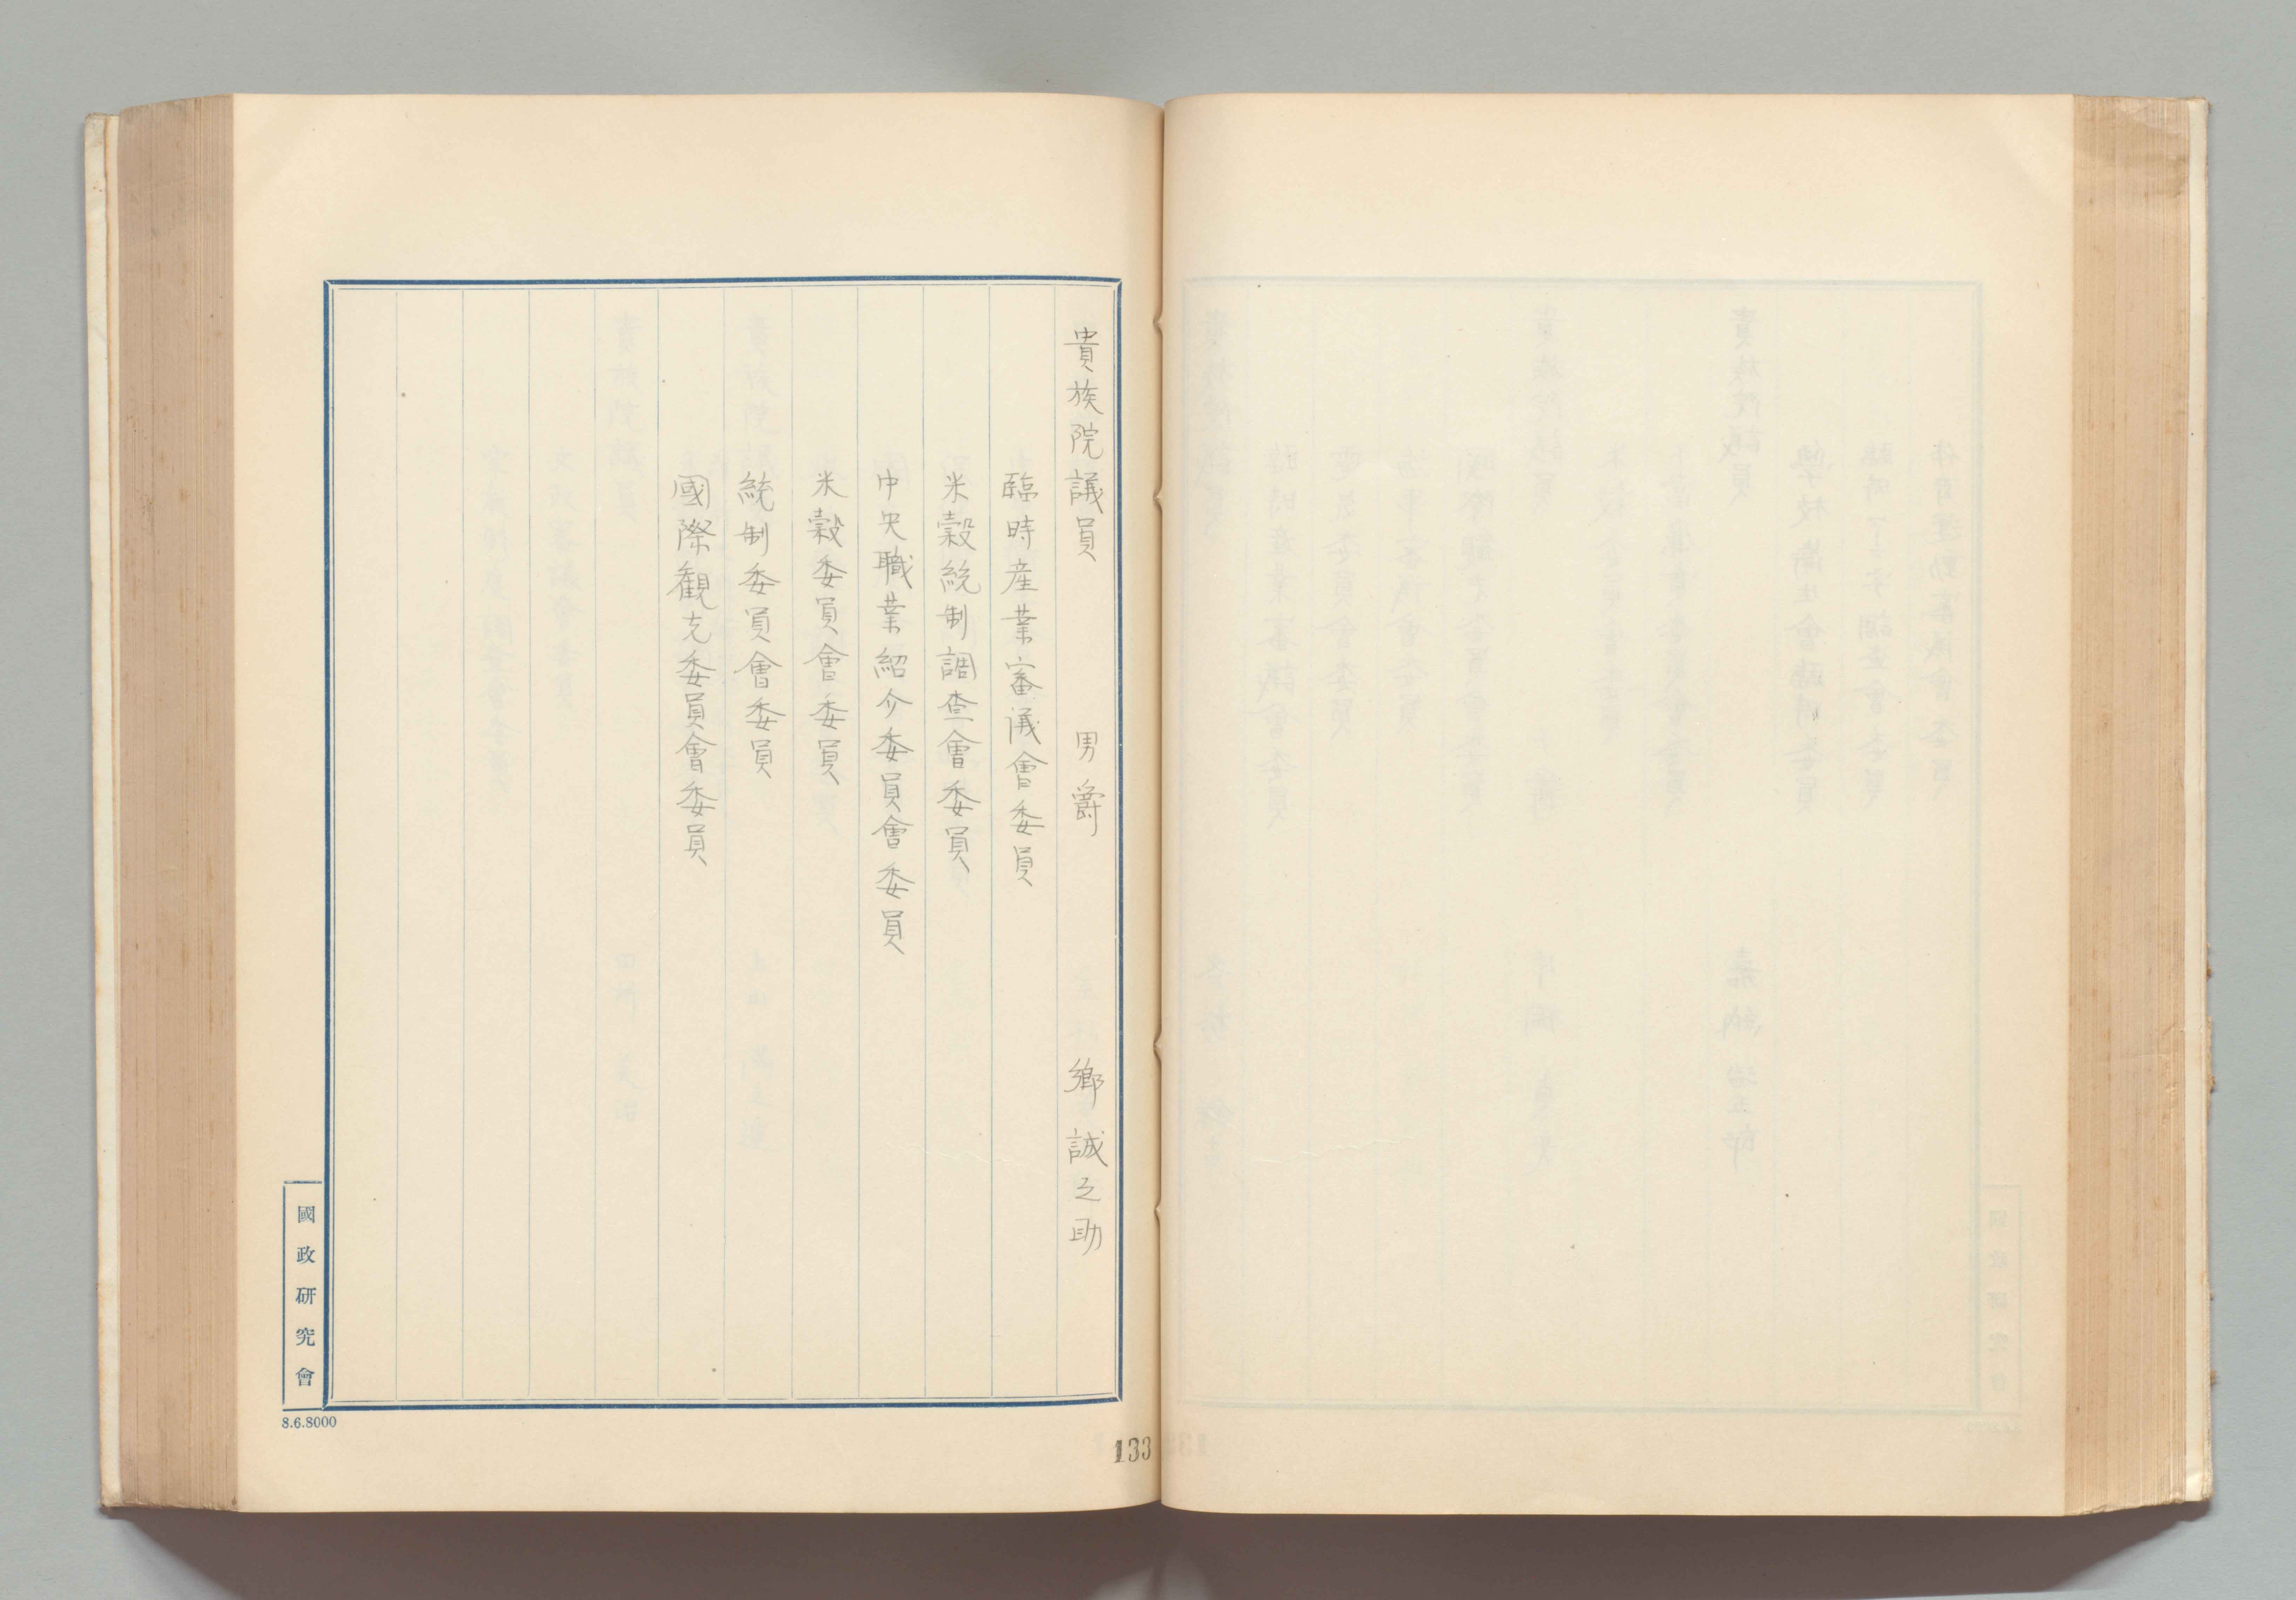 貴族院議員 男爵 郷誠之助
臨時産業審議會委員
米穀統制調査會委員
中央職業紹介委員會委員
米穀委員會委員
統制委員會委員
國際観光委員會委員
國政研究會
8.6.8000
133